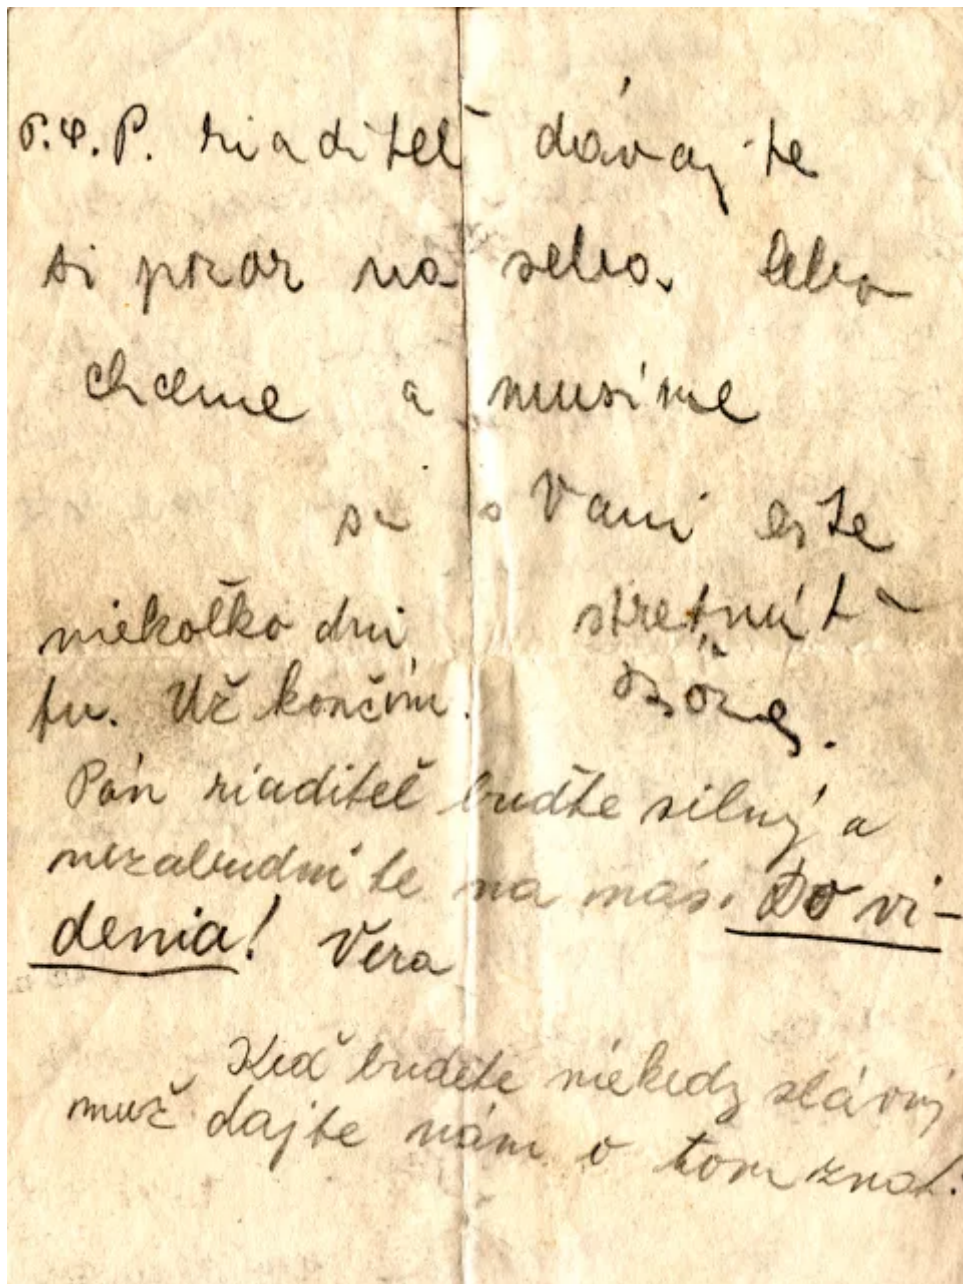 P. riaditeľ dávajte
si pozor na seba. lebo
chceme a musíme
sa s Vami ešte
stretnúť
niekoľko dní
tu. Už končím.
Pán riaditeľ buďte silný a
nezabudnite na nás. Do vi-
denia! Vera
Keď budete niekedy slávny
muž dajte nám o tom znať.